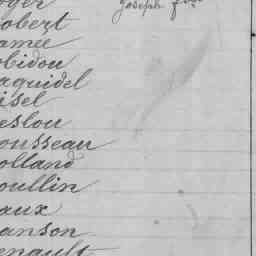 oger
Joseph
obert
amee
obidou
aquidel
isel
eslou
ousseau
olland
oullin
aux
anson
enault